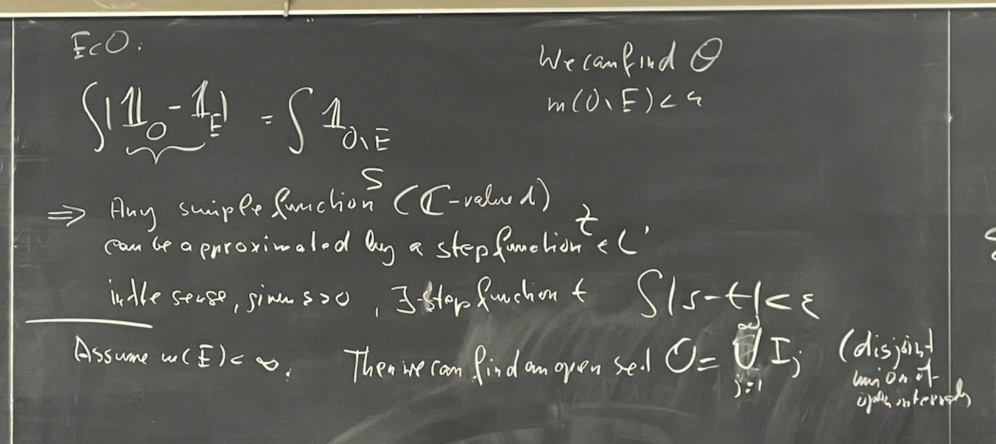 E⊂O.
We can find O
m(O\E)<ε
∫|𝟙_O - 𝟙_E| = ∫ 𝟙_{O\E}
⇒ Any simple function s (ℂ-valued)
can be approximated by a step function t ∈ L¹
in the sense, given ε>0, ∃ step function t ∫|s-t|<ε
Assume m(E)<∞. Then we can find an open set O = ⋃_{j=1}^∞ I_j (disjoint
union of
open intervals